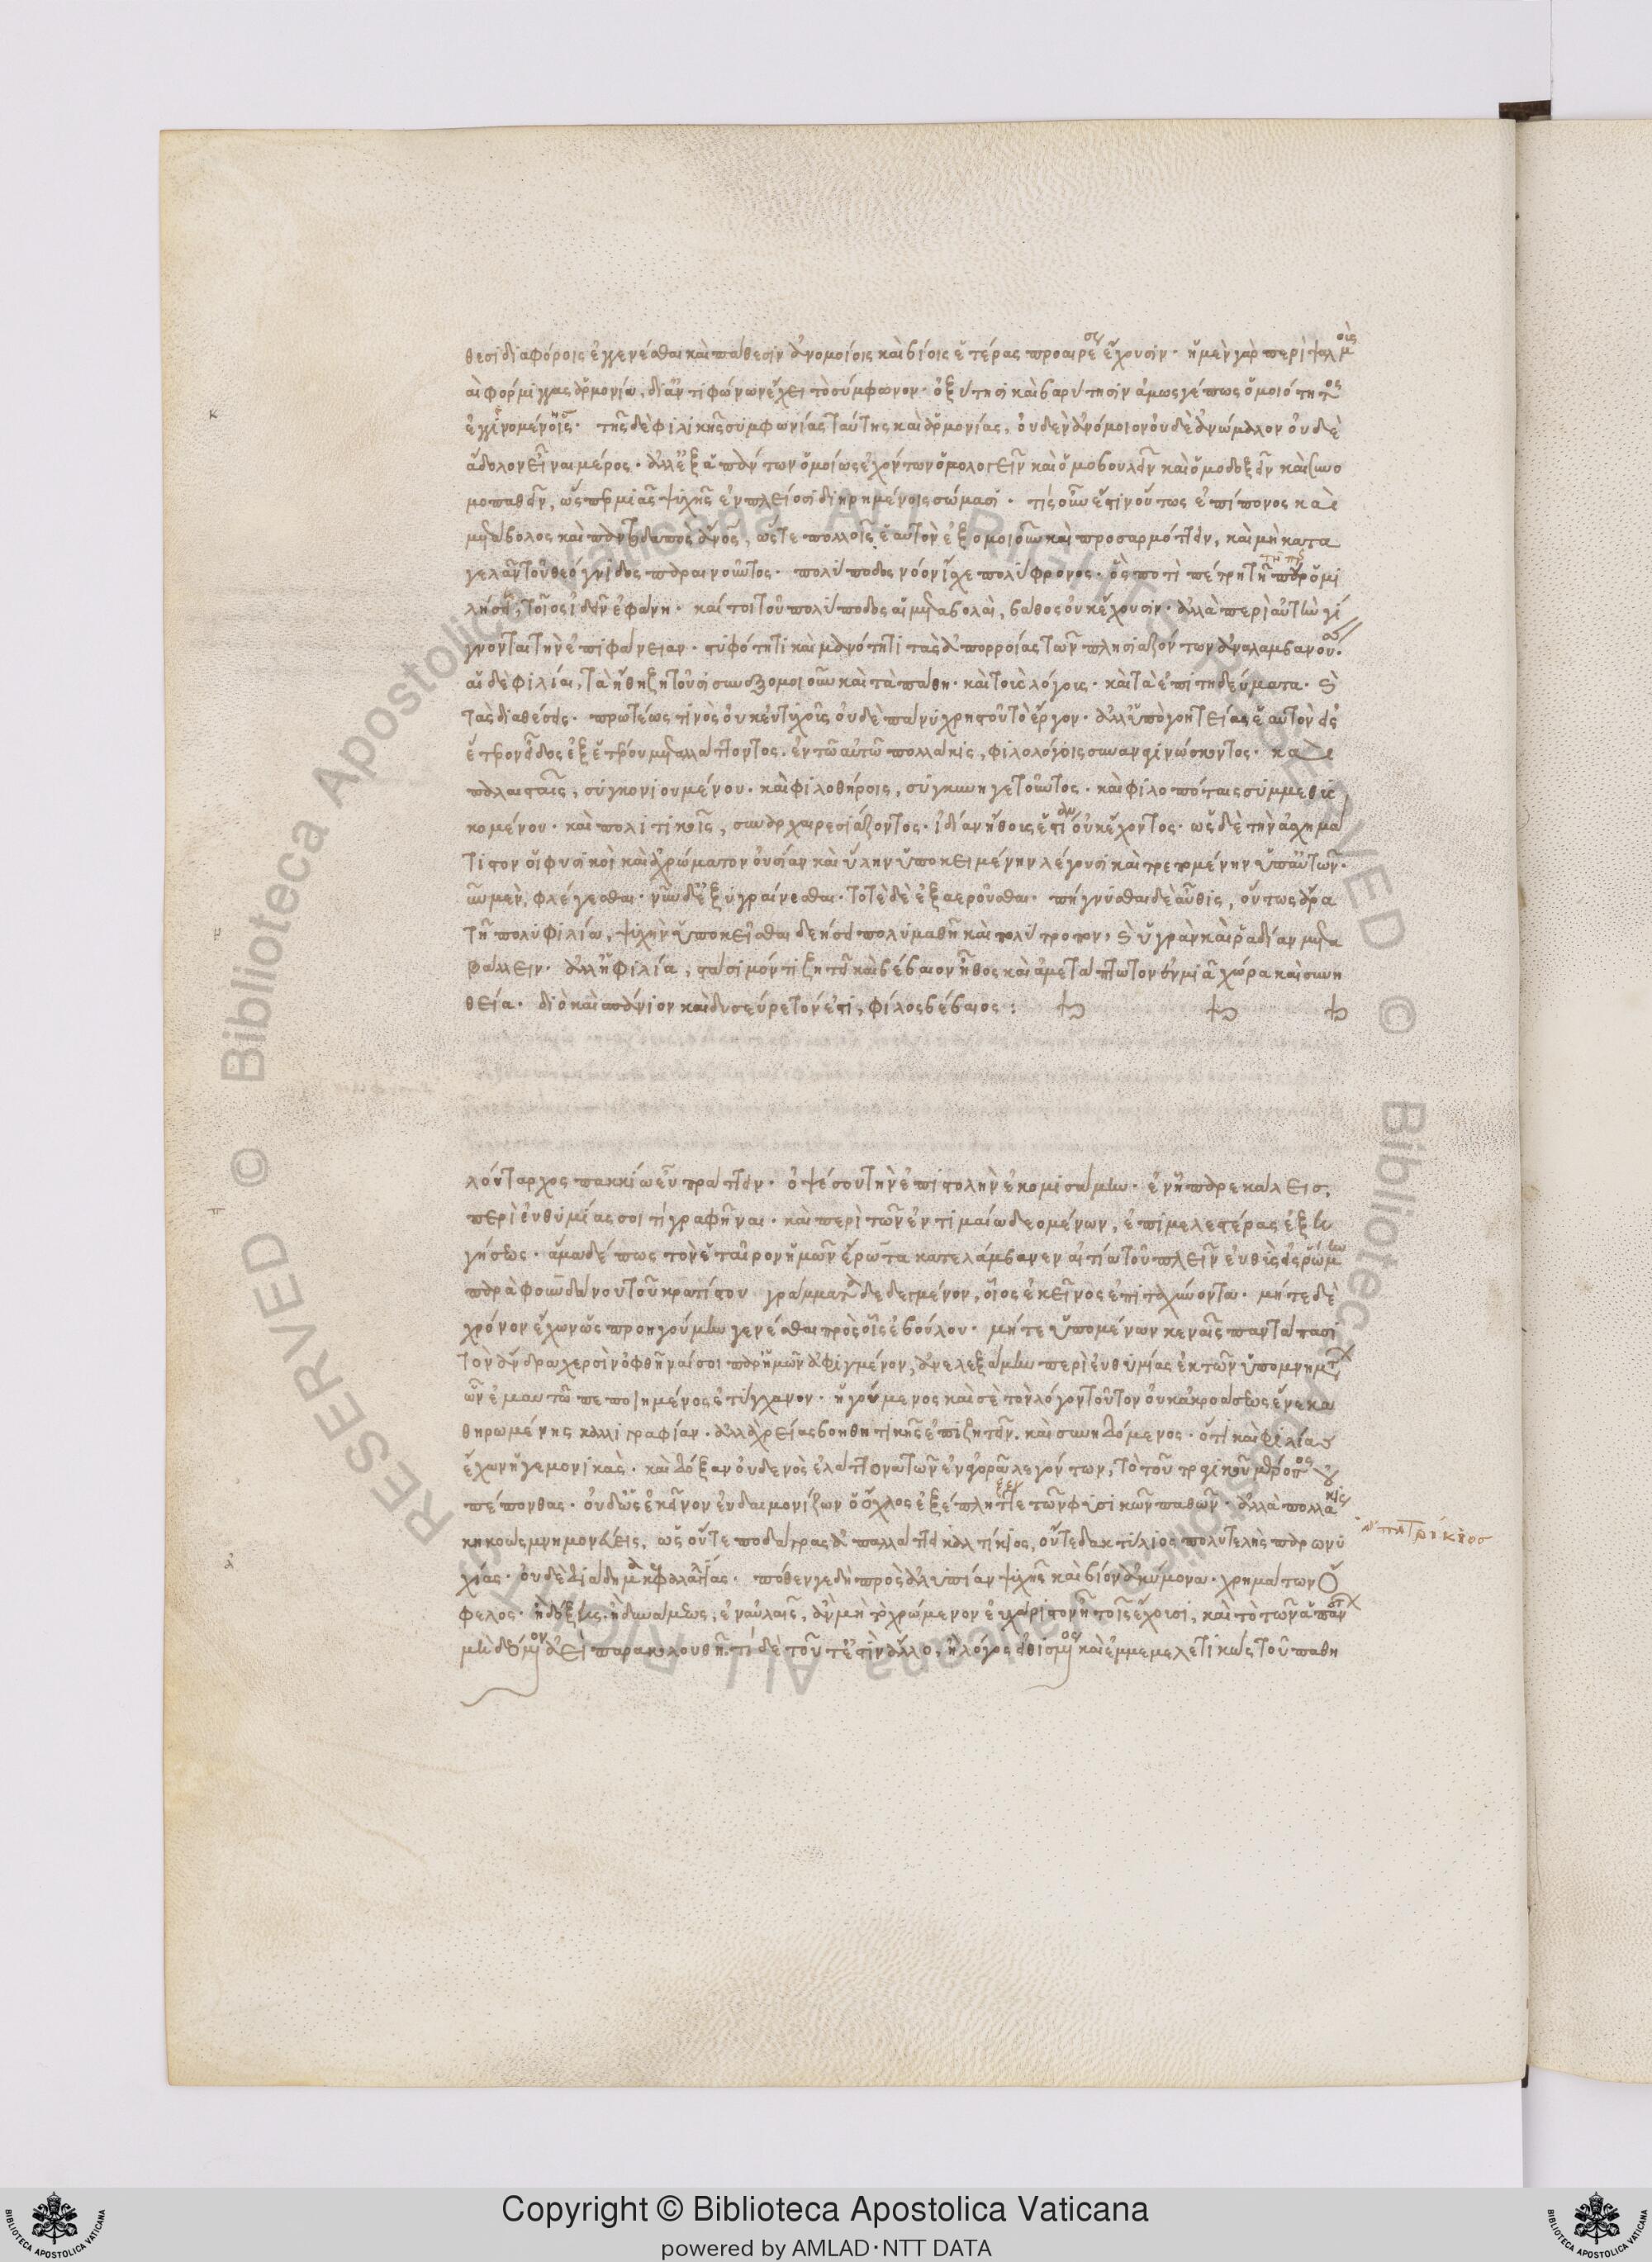 θεσι διαφόροις ἐγγενέσθαι καὶ πάθεσιν ἀνομοίοις καὶ βίοις ἑτέρας προαιρέσεις ἔχουσιν· ἡ μὲν γὰρ περὶ ψαλμοὺς
καὶ φόρμιγγας ἁρμονία, δι' ἀντιφώνων ἔχει τὸ σύμφωνον· ὀξύτησι καὶ βαρύτησιν ἁμωσγέπως ὁμοιότητος
ἐγγινομένης· τῆς δὲ φιλικῆς συμφωνίας ταύτης καὶ ἁρμονίας, οὐδὲν ἀνόμοιον οὐδὲ ἀνώμαλον οὐδὲ
ἄδολον εἶναι μέρος· ἀλλ' ἐξ ἁπάντων ὁμοίως ἐχόντων ὁμολογεῖν καὶ ὁμοβουλεῖν καὶ ὁμοδοξεῖν καὶ συνο
μοπαθεῖν, ὥσπερ μιᾶς ψυχῆς ἐν πλείοσι διῃρημένης σώμασι· τίς οὖν ἔστιν οὕτως ἐπίπονος καὶ
μετάβολος καὶ παντοδαπὸς ἄνθρωπος, ὥστε πολλοῖς ἑαυτὸν ἐξομοιοῦν καὶ προσαρμόττειν, καὶ μὴ κατα
γελᾶν τοῦ θεόγνιδος παραινοῦντος· πολύποδος νόον ἴσχε πολύφρονος· ὃς ποτὶ πέτρῃ τῇ προσομι
λήσῃ, τοῖος ἰδεῖν ἐφάνη· καίτοι τοῦ πολύποδος αἱ μεταβολαὶ, βάθος οὐκ ἔχουσιν· ἀλλὰ περὶ αὐτὴν γί
γνονται τὴν ἐπιφάνειαν· στυφότητι καὶ μανότητι τὰς ἀπορροίας τῶν πλησιαζόντων ἀναλαμβάνουσαν·
αἱ δὲ φιλίαι, τὰ ἤθη ζητοῦσι συνεξομοιοῦν καὶ τὰ πάθη· καὶ τοὺς λόγους· καὶ τὰ ἐπιτηδεύματα· καὶ
τὰς διαθέσεις· πρωτέως τινὸς οὐκ εὐτυχοῦς οὐδὲ πάνυ χρηστοῦ τὸ ἔργον· ἀλλ' ὑπὸ γοητείας ἑαυτὸν εἰς
ἕτερον εἶδος ἐξ ἑτέρου μεταλλάττοντος· ἐν τῷ αὐτῷ πολλάκις, φιλολόγοις συναναγινώσκοντος· καὶ
παλαισταῖς, συγκονιουμένου· καὶ φιλοθήροις, συγκυνηγετοῦντος· καὶ φιλοπόταις συμμεθυσ
κομένου· καὶ πολιτικοῖς, συναρχαιρεσιάζοντος· ἰδίαν ἤθους ἑστίαν οὐκ ἔχοντος· ὡς δὲ τὴν ἀσχημά
τιστον οἱ φυσικοὶ καὶ ἀχρώματον οὐσίαν καὶ ὕλην ὑποκειμένην λέγουσι καὶ τρεπομένην ὑπ' αὐτῶν·
νῦν μὲν, φλέγεσθαι· νῦν δ' ἐξυγραίνεσθαι· τοτὲ δὲ ἐξαεροῦσθαι· πήγνυσθαι δὲ αὖθις, οὕτως ἄρα
τῇ πολυφιλίᾳ, ψυχὴν ὑποκεῖσθαι δεήσει πολυμαθῆ καὶ πολύτροπον, καὶ ὑγρὰν καὶ ῥᾳδίαν μετα
βάλλειν· ἀλλ' ἡ φιλία, στάσιμόν τι ζητεῖ καὶ βέβαιον ἦθος καὶ ἀμετάπτωτον ἐν μιᾷ χώρᾳ καὶ συνη
θείᾳ· διὸ καὶ σπάνιον καὶ δυσεύρετόν ἐστι, φίλος βέβαιος:
λούταρχος πακκίῳ εὖ πράττειν· ὀψέ σου τὴν ἐπιστολὴν ἐκομισάμην· ἐν ᾗ παρεκάλεις,
περὶ εὐθυμίας σοί τι γραφῆναι· καὶ περὶ τῶν ἐν τιμαίῳ δεομένων, ἐπιμελεστέρας ἐξη
γήσεως· ἅμα δέ πως τὸν ἑταῖρον ἡμῶν ἔρωτα κατελάμβανεν αἰτία τοῦ πλεῖν εὐθὺς εἰς ῥώμην
παρὰ φουνδάνου τοῦ κρατίστου γράμματα δεδεγμένον, οἷος ἐκεῖνος ἐπιταχύνοντα· μήτε δὲ
χρόνον ἔχων ὡς προῃρούμην γενέσθαι πρὸς οἷς ἐβούλου· μήτε ὑπομένων κεναῖς παντάπασι
τὸν ἄνδρα χερσὶν ὀφθῆναί σοι παρ' ἡμῶν ἀφιγμένον, ἀνελεξάμην περὶ εὐθυμίας ἐκ τῶν ὑπομνημάτων
ὧν ἐμαυτῷ πεποιημένος ἐτύγχανον· ἡγούμενος καὶ σὲ τὸν λόγον τοῦτον οὐκ ἀκροάσεως ἕνεκα
θηρωμένης καλλιγραφίαν· ἀλλὰ χρείας βοηθητικῆς ἐπιζητεῖν· καὶ συνηδόμενος· ὅτι καὶ φιλίας
ἔχων ἡγεμονικὰς· καὶ δόξαν οὐδενὸς ἐλάττονα τῶν ἐν ἀγορᾷ λεγόντων, τὸ τοῦ τραγικοῦ μέροπος οὐ
πέπονθας· οὐδ' ὡς ἐκεῖνον εὐδαιμονίζων ὁ ὄχλος ἐξέπληττε τῶν φυσικῶν παθῶν· ἀλλὰ πολλάκις
κηκοὼς μνημονεύεις, ὡς οὔτε ποδάγρας ἀπαλλάττει κάλτικιος, οὔτε δακτύλιος πολυτελὴς παρωνυ
χίας· οὐδὲ διάδημα κεφαλαλγίας· πόθεν γε δὴ πρὸς ἀλυπίαν ψυχῆς καὶ βίον ἀκύμονα· χρημάτων ὄ
φελος· ἢ δόξης· ἢ δυνάμεως, ἐν αὐλαῖς, ἂν μὴ τὸ χρώμενον εὐχάριστον ᾖ τοῖς ἔχουσι, καὶ τὸ τῶν ἀπόντων
μὴ δεόμενον ἀεὶ παρακολουθῇ· τί δὲ τοῦτ' ἔστιν ἄλλο, ἢ λόγος εἰθισμένος καὶ ἐμμεμελετικὼς τοῦ παθη
Copyright © Biblioteca Apostolica Vaticana
powered by AMLAD·NTT DATA